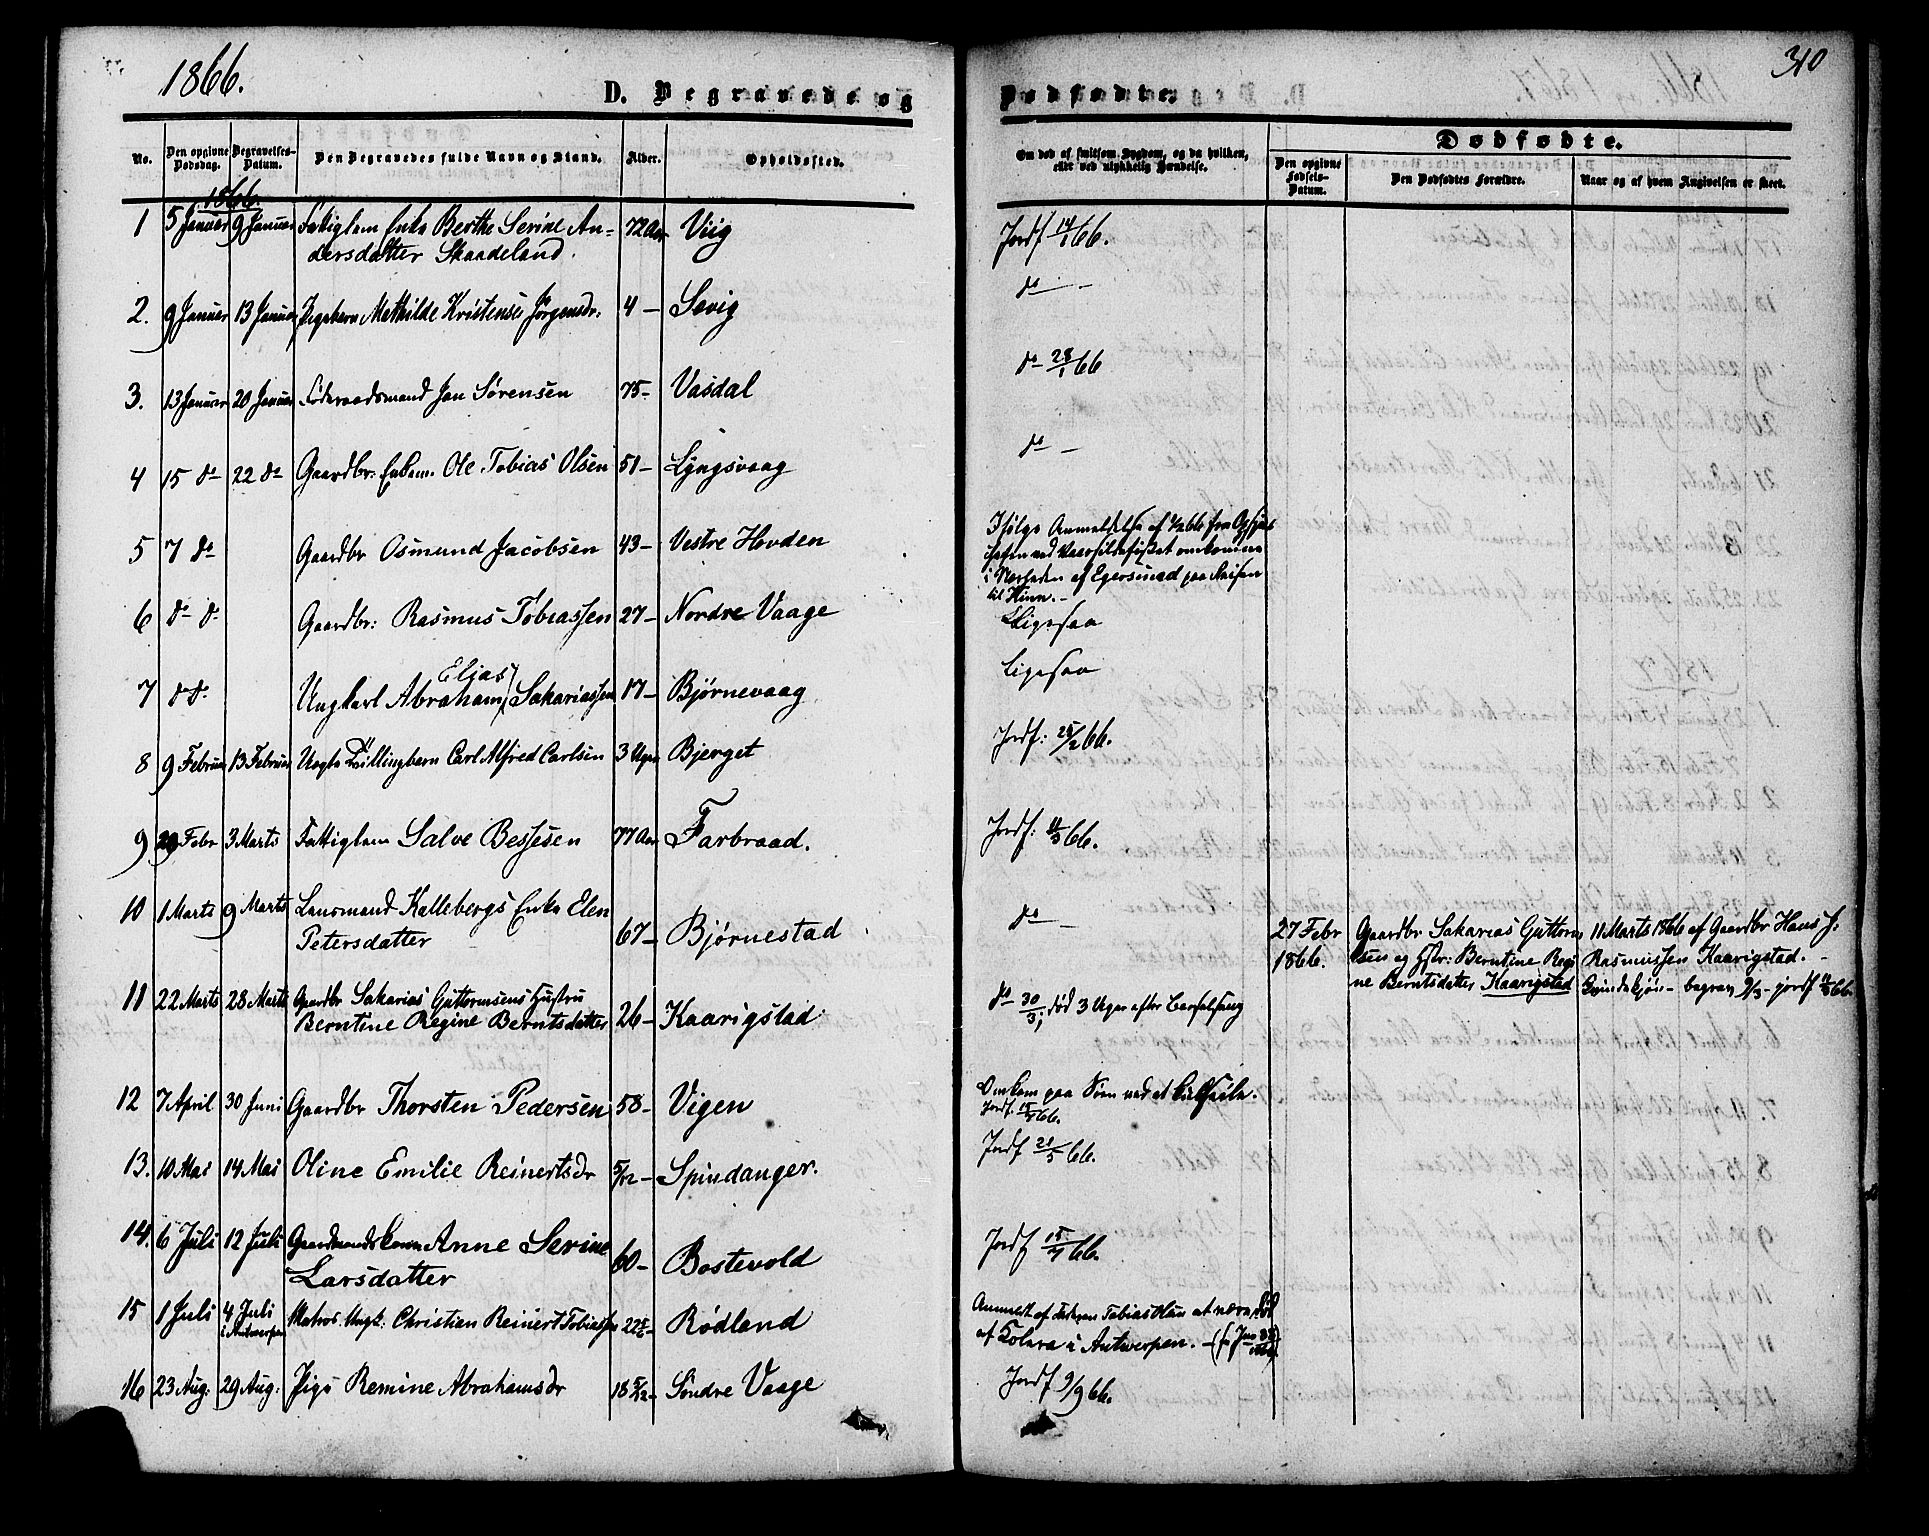 1866.
D. Begravede og
Dødfødte.
310
No.
Den opgivne Dødsdag.
Begravelses-Datum.
Den Begravedes fulde Navn og Stand.
Alder.
Opholdssted.
Om død af smitsom Sygdom, og da hvilken, eller ved ulykkelig Hændelse.
Dødfødte.
Den opgivne Fødsels-Datum.
Den Dødfødtes Forældre.
Naar og af hvem Angivelsen er skeet.
1866.
1 5 Januar 9 Januar Fattiglem Enke Berthe Serine An-
dersdatter Skaadeland. 72 Aar Viig Jordf 14/1 66.
2. 9 Januar 13 Januar Pigebarn Mathilde Kristense Jörgensdr. 4 — Sevig do —
3. 13 Januar 20 Januar Föderaadsmand Jan Sørensen 75 — Vasdal do — 28/1 66
4 15 do 22 do Gaardbr. Enkem. Ole Tobias Olsen 51 — Lyngsvaag do —
5 7 do Gaardbr Osmund Jacobsen 43 — Vestre Hovden Ifølge Anmeldelse af 4/2 66 fra
ved Vaarsildefisket omkomne
i Nærheden af Egersund paa Reisen
til Hinn. —
6 do do Gaardbr: Rasmus Tobiassen 27 — Nordre Vaage Ligesaa
7 do do Ungkarl Abraham Elias Sakariassen 17 — Bjørnevaag Ligesaa
8 9 Februar 13 Februar Uægte Tvillingbarn Carl Alfred Carlsen 3 Uger Bjerget Jordf: 25/2 66.
9 20 Febr 3 Marts Fattiglem Salve Bessesen 77 Aar Farbraad. Jordf: 11/3 66.
10 1 Marts 9 Marts Lensmand Kallebergs Enke Elen
Petersdatter 67 — Bjørnestad do —
27 Febr
1866.
Gaardbr Sakarias Guttorm-
sen og Hstr: Berntine Regi-
ne Berntsdatter Kaarigstad
11 Marts 1866 af Gaardbr Hans J.
Rasmussen Kaarigstad. —
Qvindekjøn — begrav 9/3 — jordf 11/3 66.
11 22 Marts 28 Marts Gaardbr Sakarias Guttormsens Hustru
Berntine Regine Berntsdatter 26 — Kaarigstad do 30/3; død 3 Uger efter Barselseng
12 7 April 30 Juni Gaardbr Thorsten Pedersen 58 — Vigen Omkom paa Søen ved at kuldseile.
Jordf. 15/7 66.
13. 10 Mai 14 Mai Oline Emilie Reinertsdr 5/12 — Spindanger. Jordf 20/5 66.
14. 6 Juli 12 Juli Gaardmandskone Anne Serine
Larsdatter 60 — Bostevold Jordf 15/7 66.
15 1 Juli 4 Juli
i Antwerpen Matros Ungk: Christian Reinert Tobiassen 22 — Rødland Anmeldt af Faderen Tobias at være død
af Kolera i Antwerpen. —
16 23 Aug: 29 Aug: Pige Remine Abrahamsdr 18 5/12 — Söndre Vaage Jordf 9/9 66.